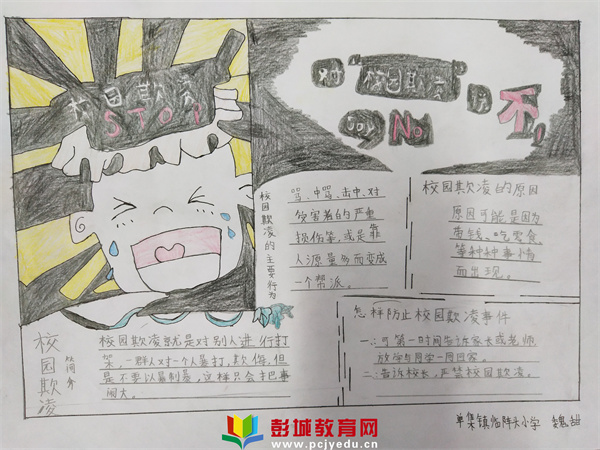 校园欺凌
STOP
对"校园欺凌"说
不!
say No!
校园欺凌的主要行为
骂、中骂、击中、对
受害者的严重
损伤等,或是靠
人源量多而变成
一个帮派。
校园欺凌的原因
原因可能是因为
费钱、吃零食
等种种事情
而出现。
校园欺凌
简介
校园欺凌就是对别人进行打
架,一群人对一个人暴打,欺侮,但
是不要以暴制暴,这样只会把事
闹大。
怎样防止校园欺凌事件
一:可第一时间告诉家长或老师
放学与同学一周回家。
二:告诉校长,严禁校园欺凌。
单集镇临阵夫小学 魏甜
彭城教育网
www.pcjyedu.cn